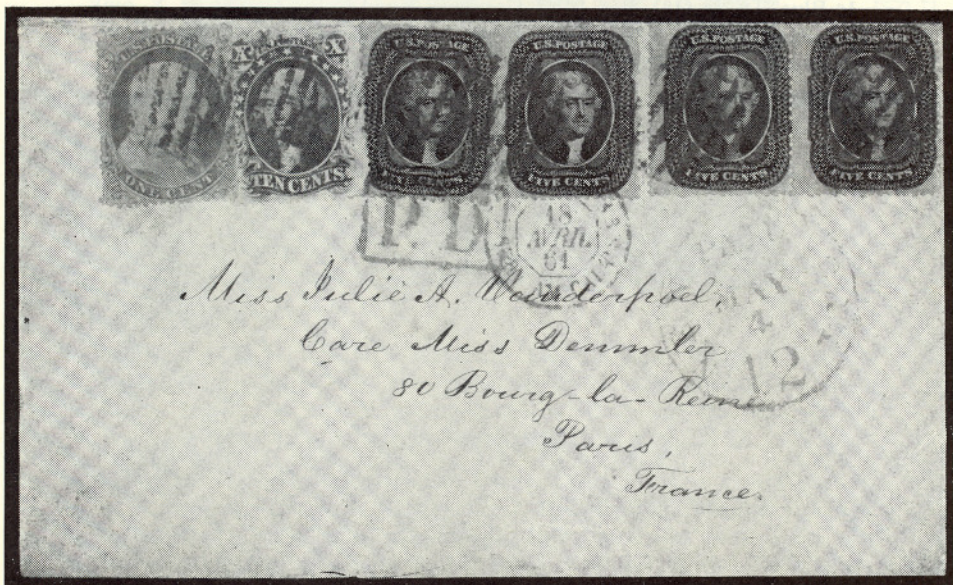 U.S. POSTAGE
ONE CENT
X U.S. POSTAGE X
TEN CENTS
U.S. POSTAGE
FIVE CENTS
U.S. POSTAGE
FIVE CENTS
U.S. POSTAGE
FIVE CENTS
U.S. POSTAGE
FIVE CENTS
P.D.
18
61
MAY
4
12
Miss Julie A. Vanderpoel,
Care Miss Demmler
80 Bourg-la-Reine
Paris,
France.